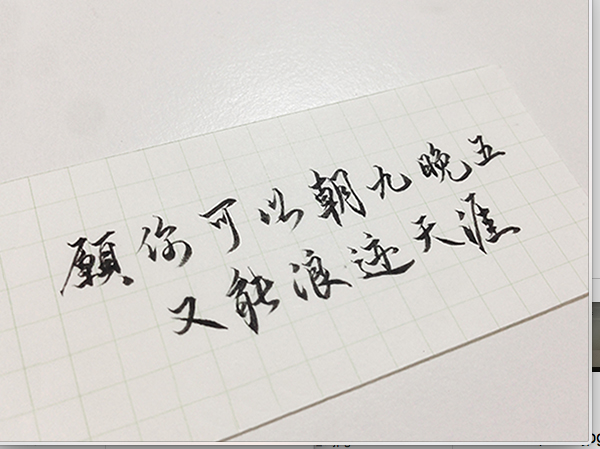 願你可以朝九晚五
又能浪迹天涯